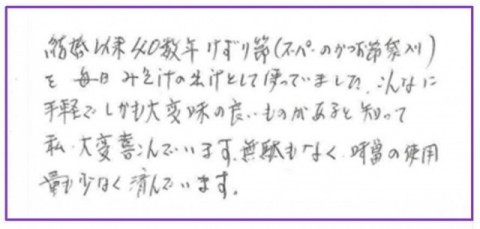 結婚以来40数年けずり節(スーパーのかつお節袋入り)
を毎日みそ汁の出汁として使っていました。こんなに
手軽でしかも大変味の良いものがあると知って
私、大変喜んでいます。無駄もなく、時富の使用
量も少なく済んでいます。